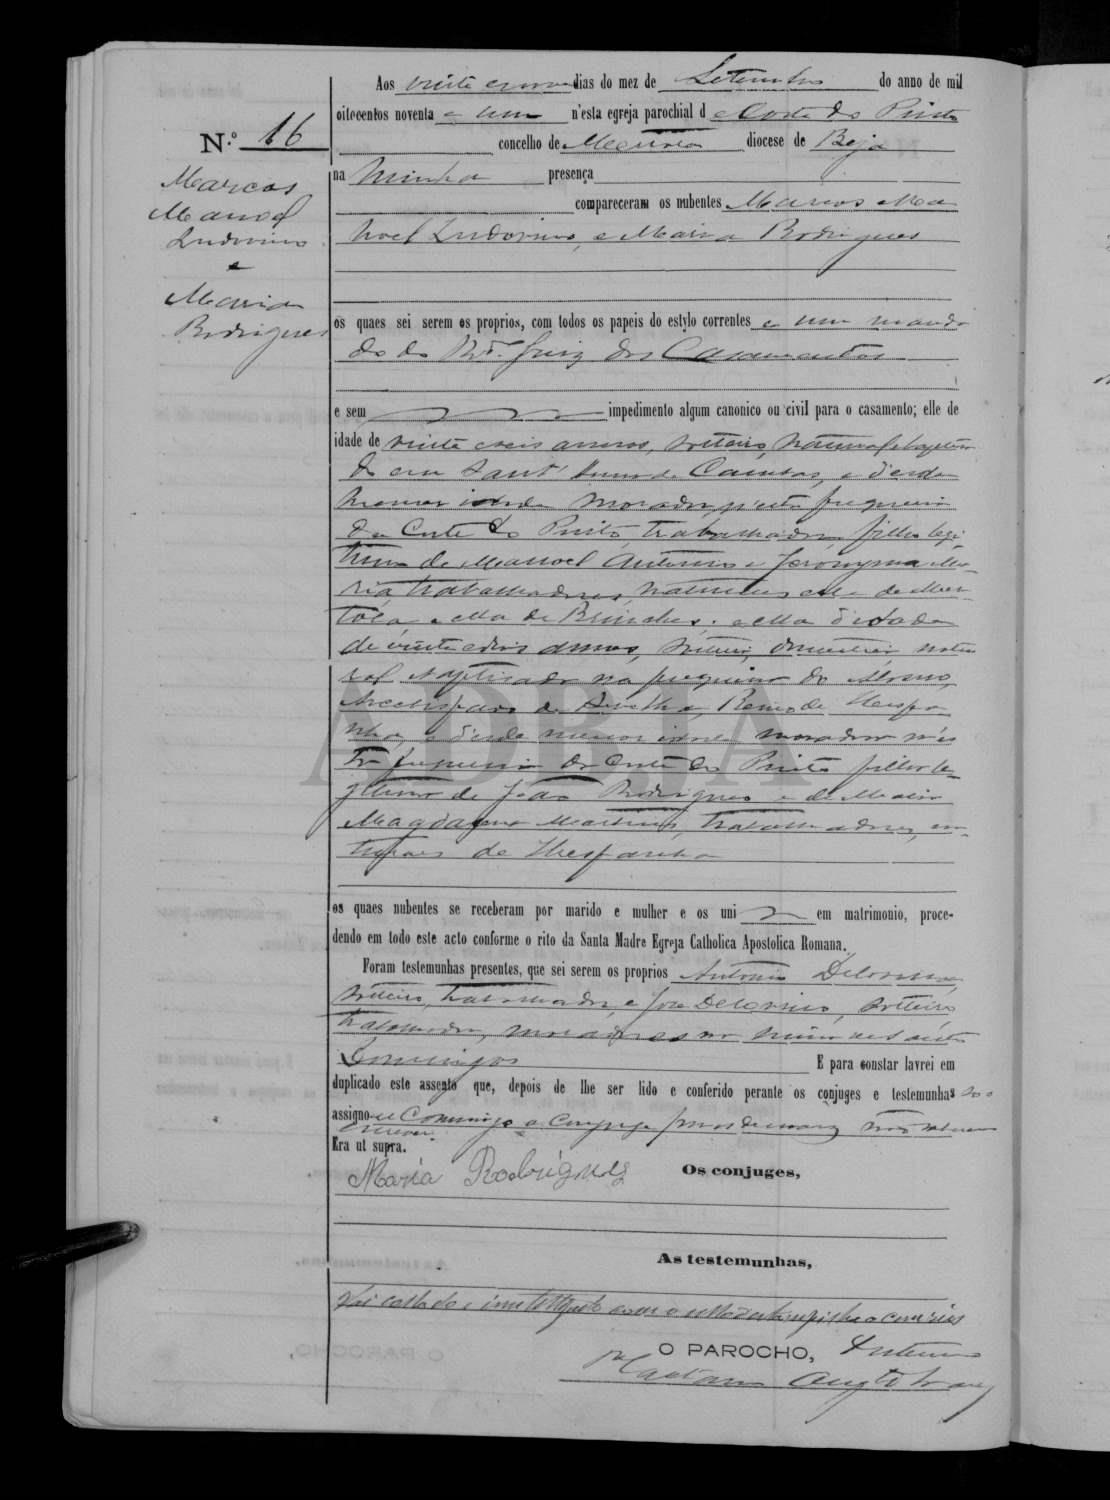 Aos vinte e nove dias do mez de Setembro do anno de mil
oitocentos noventa e um n'esta egreja parochial d e Corte do Pinto
N.º 16
concelho de Mertola diocese de Beja
na minha presença
Marcos
Manoel
Ludovino
e
Maria
Rodrigues
compareceram os nubentes Marcos Ma
noel Ludovino, e Maria Rodrigues
os quaes sei serem os proprios, com todos os papeis do estylo correntes e um manda
do do Rdº. Juiz dos Casamentos
e sem impedimento algum canonico ou civil para o casamento; elle de
idade de vinte e seis annos, solteiro, natural e baptisa
do em Sant' Anna de Cambas, e desde
menor idade morador n'esta freguezia
da Corte do Pinto, trabalhador, filho legi-
timo de Manoel Antonio e Jeronyma Ma-
ria, trabalhadores, naturaes elle de Mer-
tola e ella de Brinches; e ella d'idade
de vinte e dois annos, solteira, domestica, natu
ral e baptisada na freguezia do Alosno,
Arcebispado de Sevilha, Reino de Hespa
nha, e desde menor idade moradora n'es
ta freguezia da Corte do Pinto filha le-
gitima de João Rodrigues e de Maria
Magdalena Martins, trabalhadores, na-
turaes de Hespanha
os quaes nubentes se receberam por marido e mulher e os uni em matrimonio, proce-
dendo em todo este acto conforme o rito da Santa Madre Egreja Catholica Apostolica Romana.
Foram testemunhas presentes, que sei serem os proprios Antonio
solteiro, trabalhador, e José solteiro
trabalhador, moradores na mina de São
Domingos E para constar lavrei em
duplicado este assento que, depois de lhe ser lido e conferido perante os conjuges e testemunhas
assigno e commigo a conjuge por os demais não saberem
escrever.
Era ut supra.
Os conjuges,
Maria Rodrigues
As testemunhas,
Vai collada e inutilisada
O PAROCHO, Antonio
Caetano Augto
ADBJA